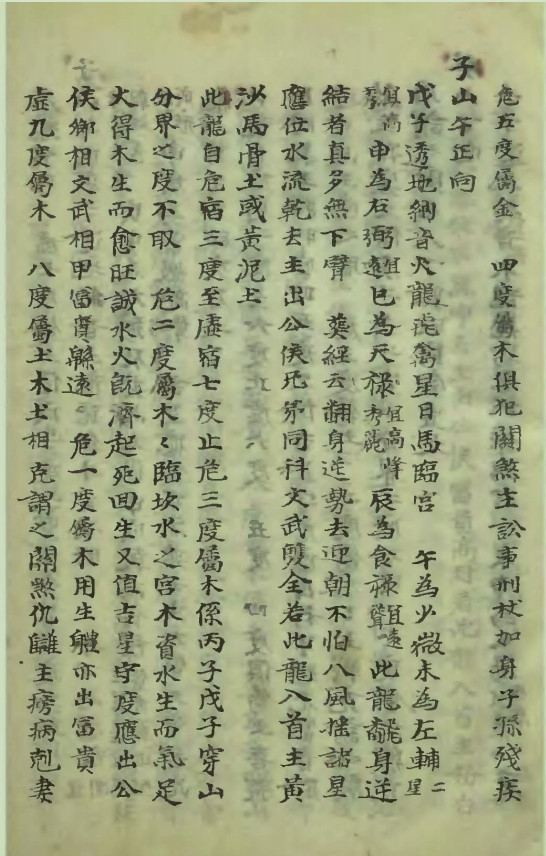 危五度屬金　四度屬木俱犯關煞主訟事刑杖加身子孫殘疾
子山午正向
戊子透地納音火龍虎禽星日馬臨宮　午為少微未為左輔二星
宜高秀申為石弼宜遠巳為天祿宜高峰秀麗辰為食祿宜遠聳此龍翻身逆
結若真多無下臂　葬經云翻身逆勢去迎朝不怕八風搖諸星
應位水流乾去主出公侯兄弟同科文武雙全若此龍入首主黃
沙馬骨土或黃泥土
此龍自危宿三度至虛宿七度止危三度屬木係丙子戊子穿山
分界之度不取　危二度屬木々臨坎水之宮木資水生而氣足
火得木生而愈旺誠水火既濟起死回生又值吉星守度應出公
侯卿相文武相甲富貴綿遠　危一度屬木用生體亦出富貴
虛九度屬木　八度屬土木土相克謂之關煞仇讎主癆病剋妻